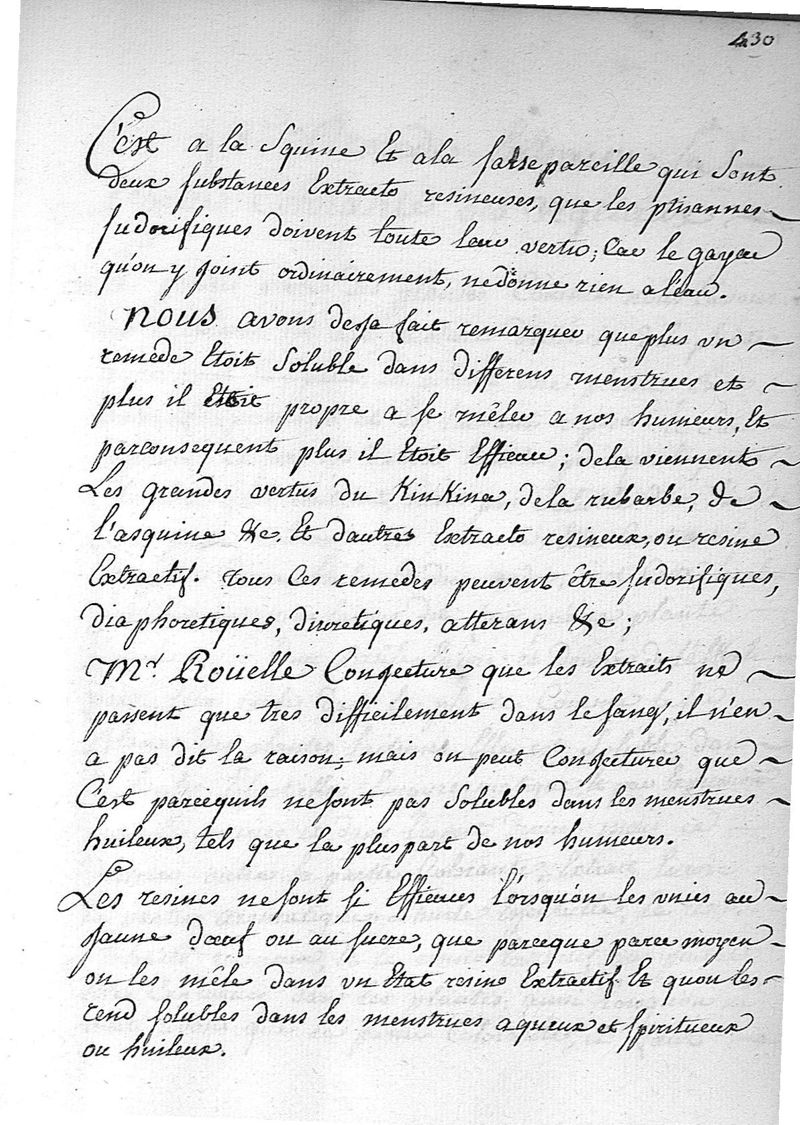 430
C'est a la Squine Et ala salsepareille qui sont
deux substances Extracto resineuses, que les ptisannes
sudorifiques doivent toute leur vertu; Car le gayac
qu'on y joint ordinairement, ne donne rien a l'eau.
nous avons deja fait remarquer que plus un
remede Etoit soluble dans differens menstrues et
plus il Etoit propre a se mêler a nos humeurs, Et
parconsequent plus il Etoit Efficace; dela viennent
Les grandes vertus du KinKina, de la rubarbe, de
l'asquine &c, Et dautres Extracto resineux, ou resino
Extractif. Tous Ces remedes peuvent être sudorifiques,
diaphoretiques, diuretiques, alterans &c;
Mr. Roüelle Conjecture que les Extraits ne
passent que tres difficilement dans le sang, il n'en
a pas dit la raison; mais on peut Conjecturer que
C'est parcequils ne sont pas solubles dans les menstrues
huileux, tels que la pluspart de nos humeurs.
Les resines ne sont si Efficaces l'orsqu'on les unies au
jaune d'œuf ou au sucre, que parceque parce moyen
on les mêle dans un Etat resino Extractif Et quon les
rend solubles dans les menstrues aqueux et spiritueux
ou huileux.